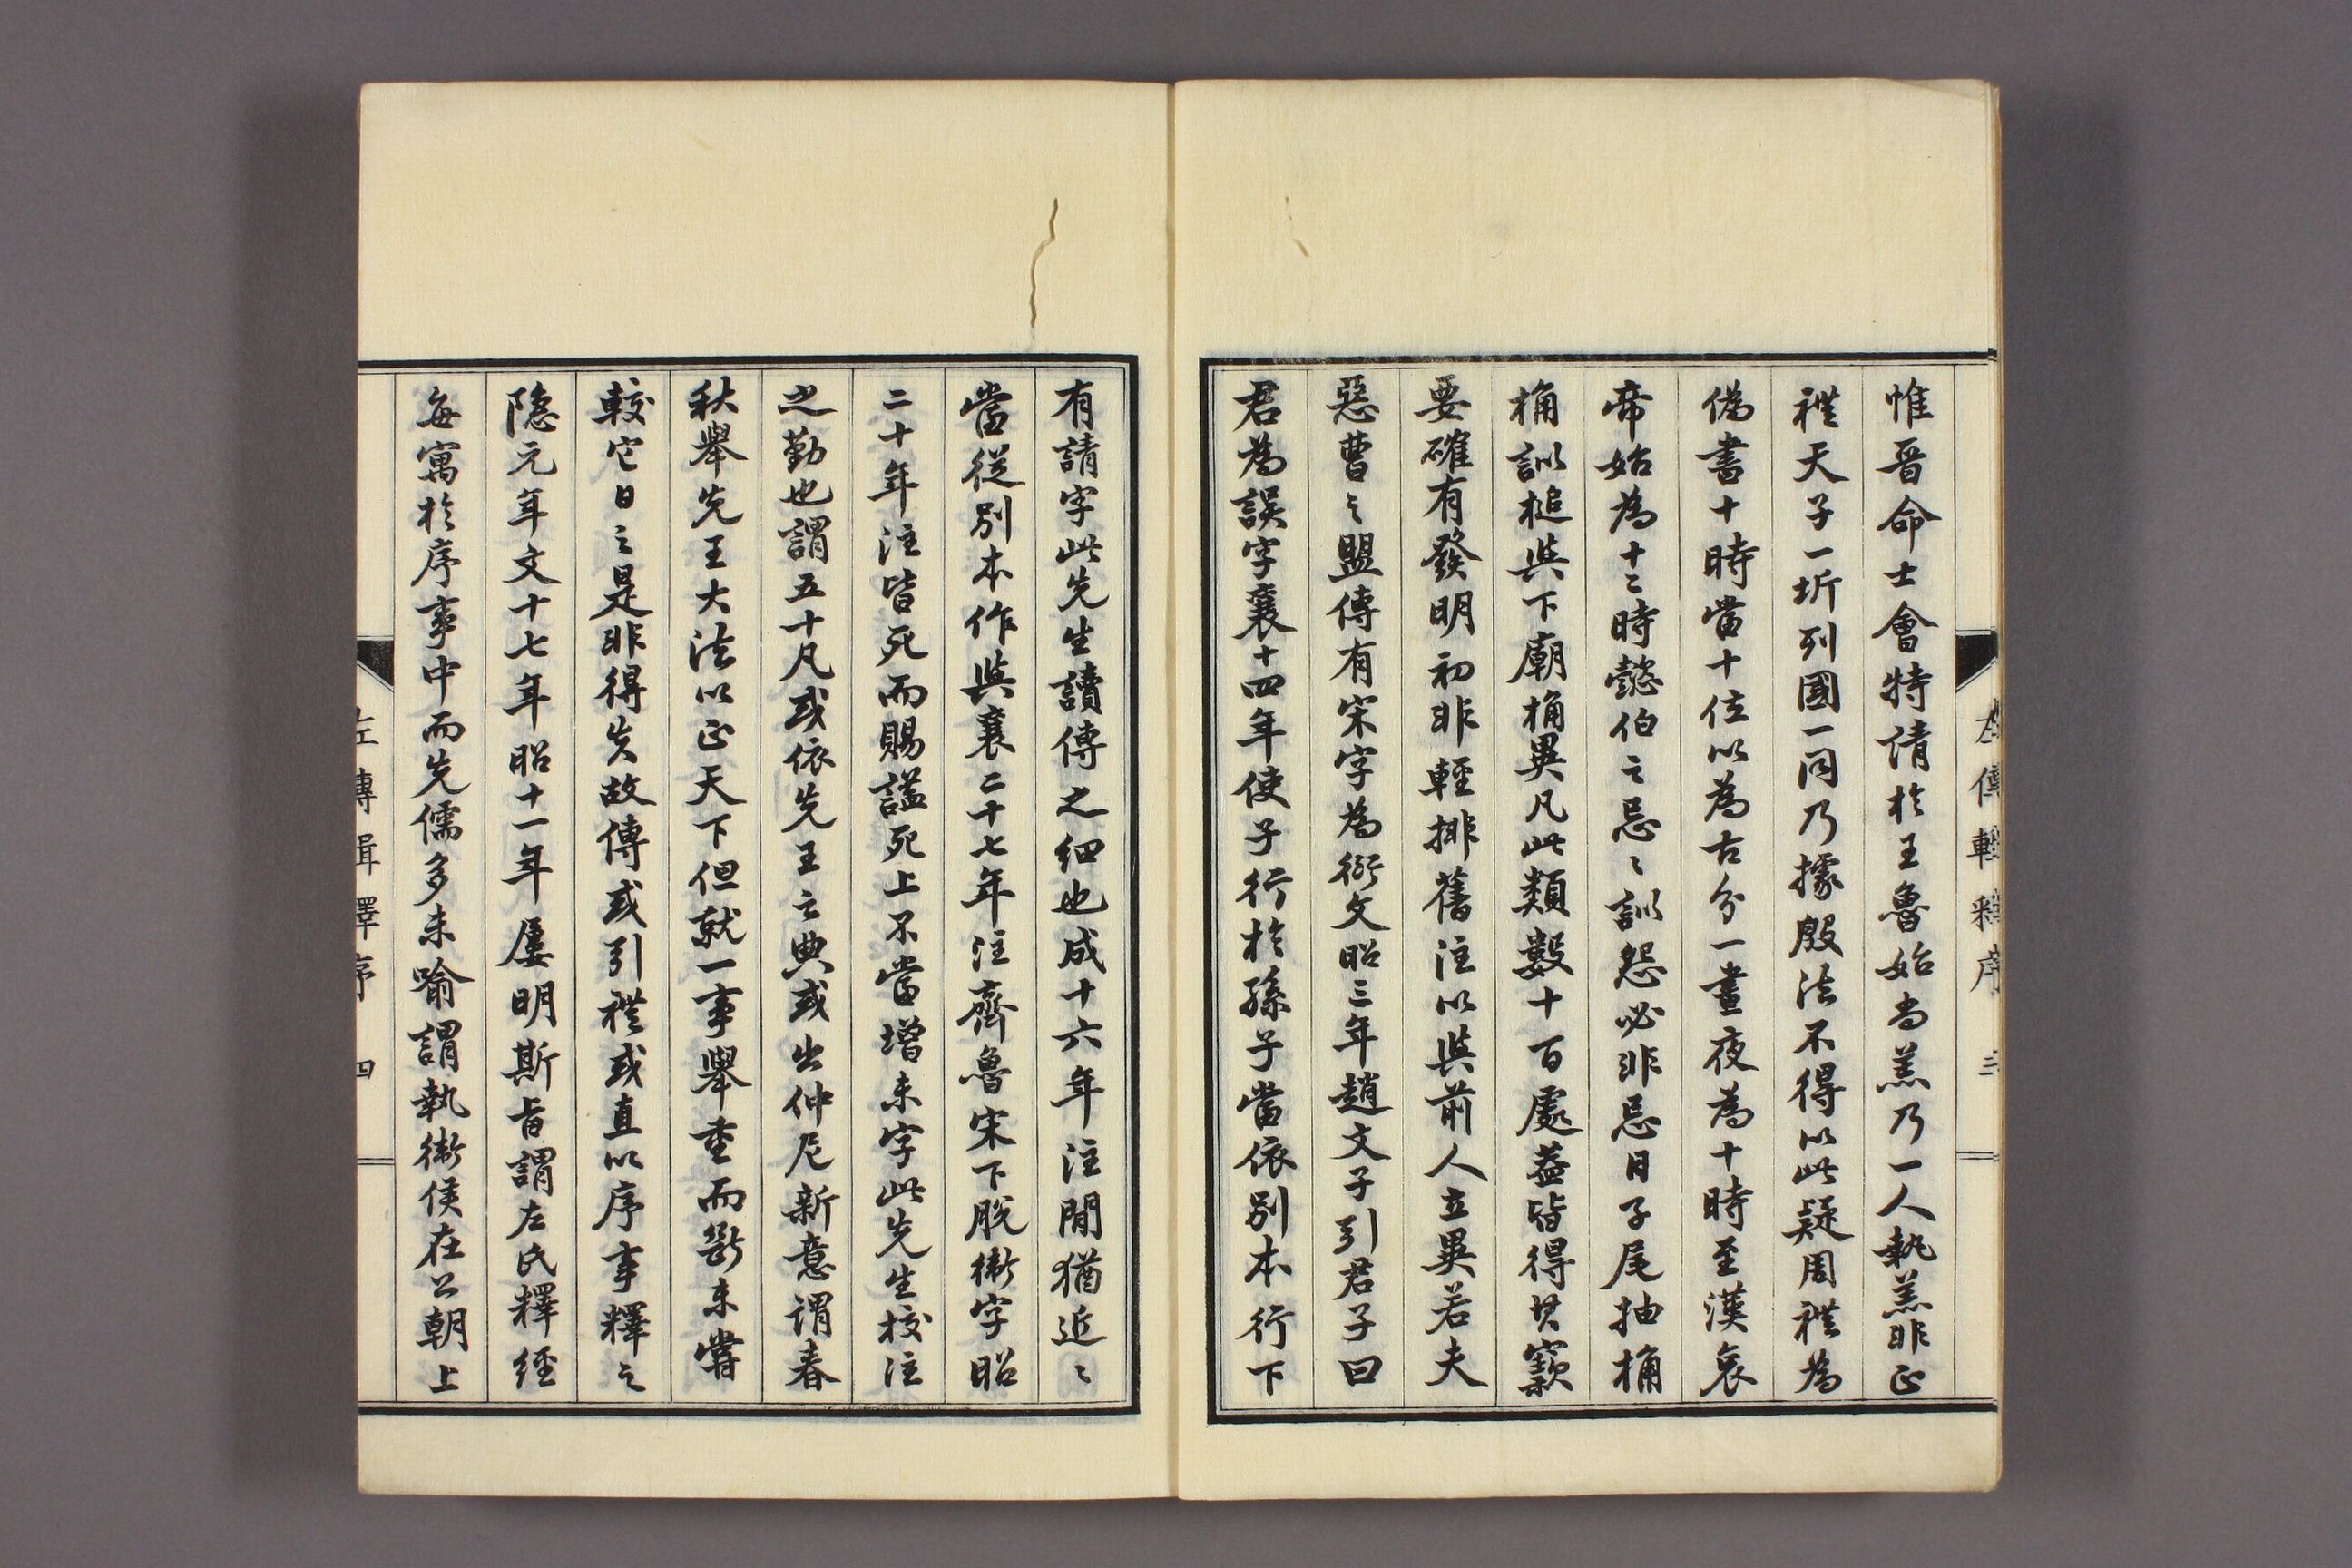 惟晉命士會特請於王魯始尚羔乃一人執羔非正
禮天子一圻列國一同乃據殷法不得以此疑周禮為
偽書十時當十位以為古分一晝夜為十時至漢哀
帝始為十二時懿伯之忌〻訓怨必非忌日子尾抽桷
桷訓槌與下廟桷異凡此類數十百處蓋皆得其窾
要確有發明初非輕排舊注以與前人立異若夫
惡曹之盟傳有宋字為衍文昭三年趙文子引君子曰
君為誤字襄十四年使子行於孫子當依別本行下
有請字此先生讀傳之細也成十六年注閒猶近〻
當從別本作與襄二十七年注齊魯宋下脫衞字昭
二十年注皆死而賜諡死上不當增未字此先生校注
之勤也謂五十凡或依先王之典或出仲尼新意謂春
秋舉先王大法以正天下但就一事舉重而斷未嘗
較它日之是非得失故傳或引禮或直以序事釋之
隱元年文十七年昭十一年屢明斯旨謂左氏釋經
每寓於序事中而先儒多未喻謂執衞侯在公朝上
左傳輯釋序 三
左傳輯釋序 四